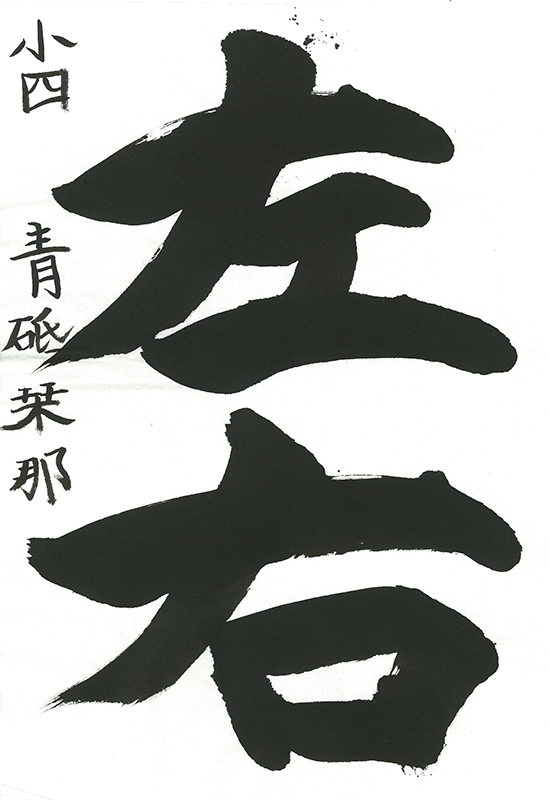 左右
小四 青砥栞那